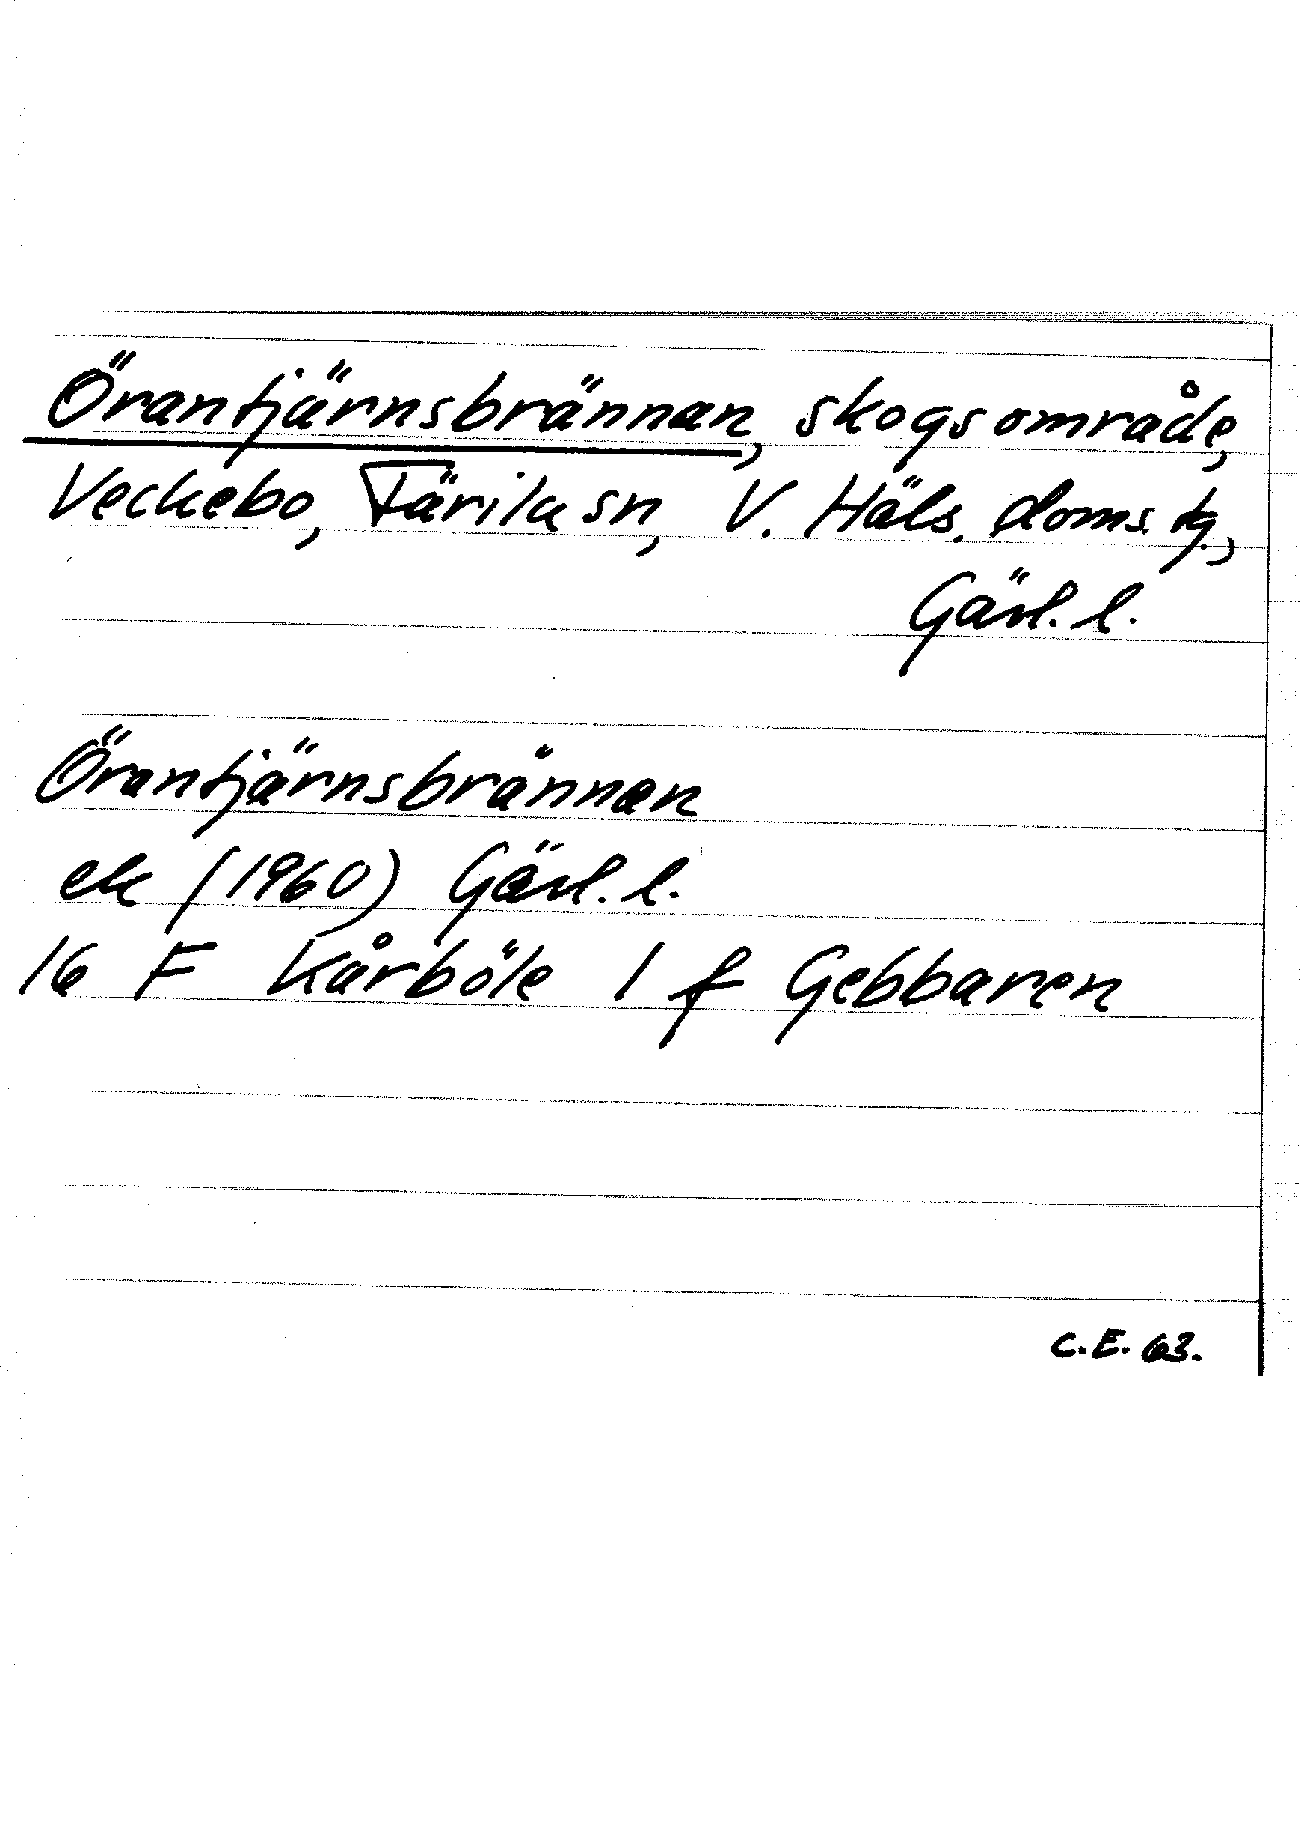 Örantjärnsbrännan, skogsområde,
Veckebo, Färila sn, V. Häls. doms. tg.,
Gävl. l.
Örantjärnsbrännan
ek (1960) Gävl. l.
16 F Kårböle 1 f Gebbaren
C.E. 63.